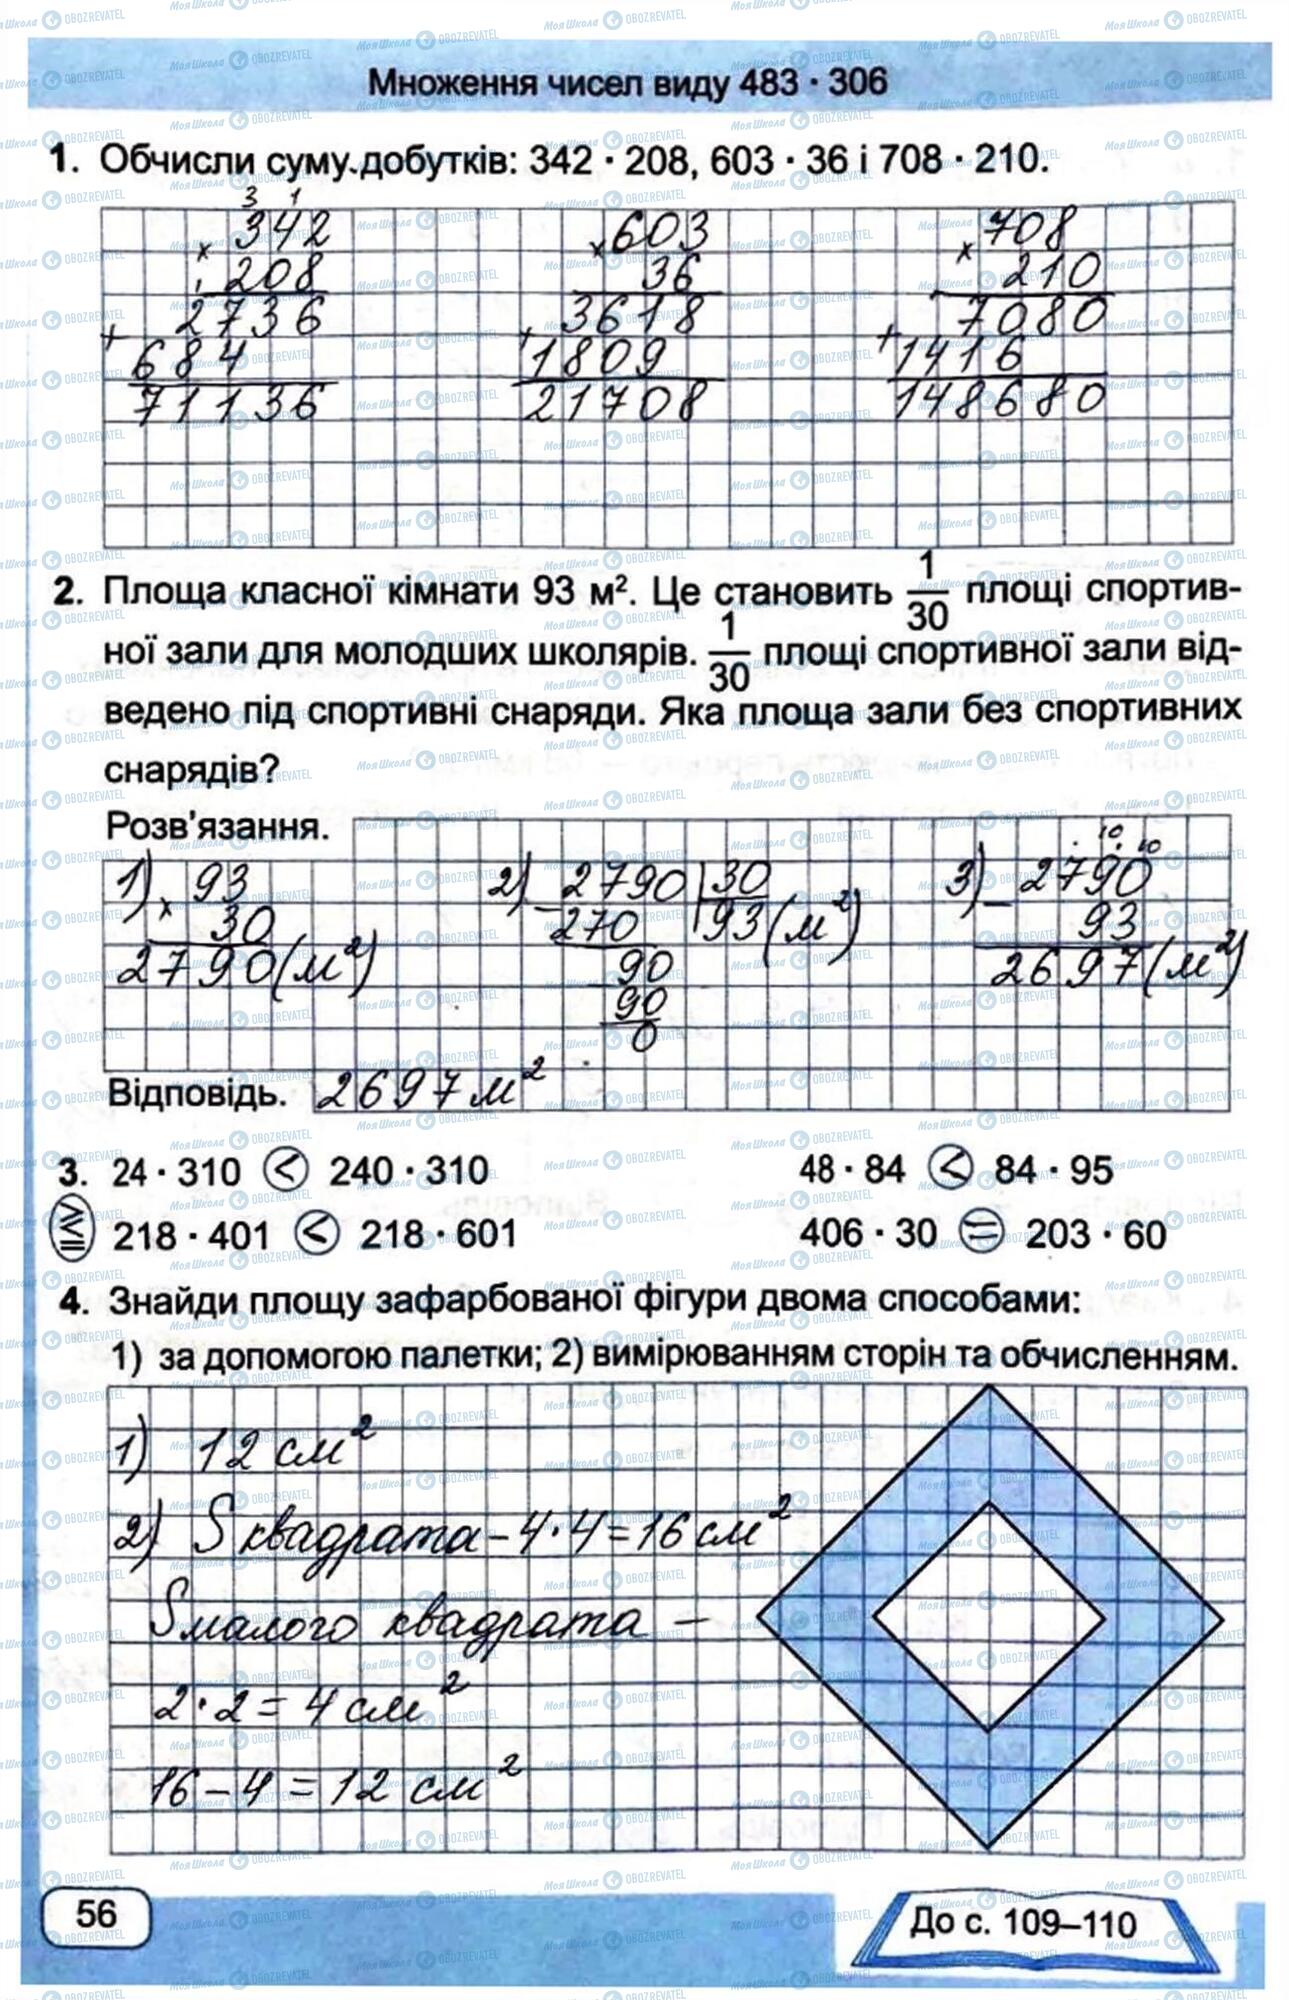 Множення чисел виду 483 · 306
1. Обчисли суму добутків: 342 · 208, 603 · 36 і 708 · 210.
3 1
342 603 708
× 208 × 36 × 210
2736 3618 7080
+ 684 + 1809 + 1416
71136 21708 148680
2. Площа класної кімнати 93 м². Це становить 1/30 площі спортив-
ної зали для молодших школярів. 1/30 площі спортивної зали від-
ведено під спортивні снаряди. Яка площа зали без спортивних
снарядів?
Розв'язання.
10 10
1) × 93 2) − 2790 | 30 3) − 2790
30 270 | 93 (м²) 93
2790 (м²) 90 2697 (м²)
90
0
Відповідь. 2697 м²
3. 24 · 310 < 240 · 310 48 · 84 < 84 · 95
> < = 218 · 401 < 218 · 601 406 · 30 = 203 · 60
4. Знайди площу зафарбованої фігури двома способами:
1) за допомогою палетки; 2) вимірюванням сторін та обчисленням.
1) 12 см²
2) S квадрата − 4·4=16 см²
S малого квадрата −
2·2=4 см²
16−4=12 см²
56
До с. 109–110
МояШкола OBOZREVATEL